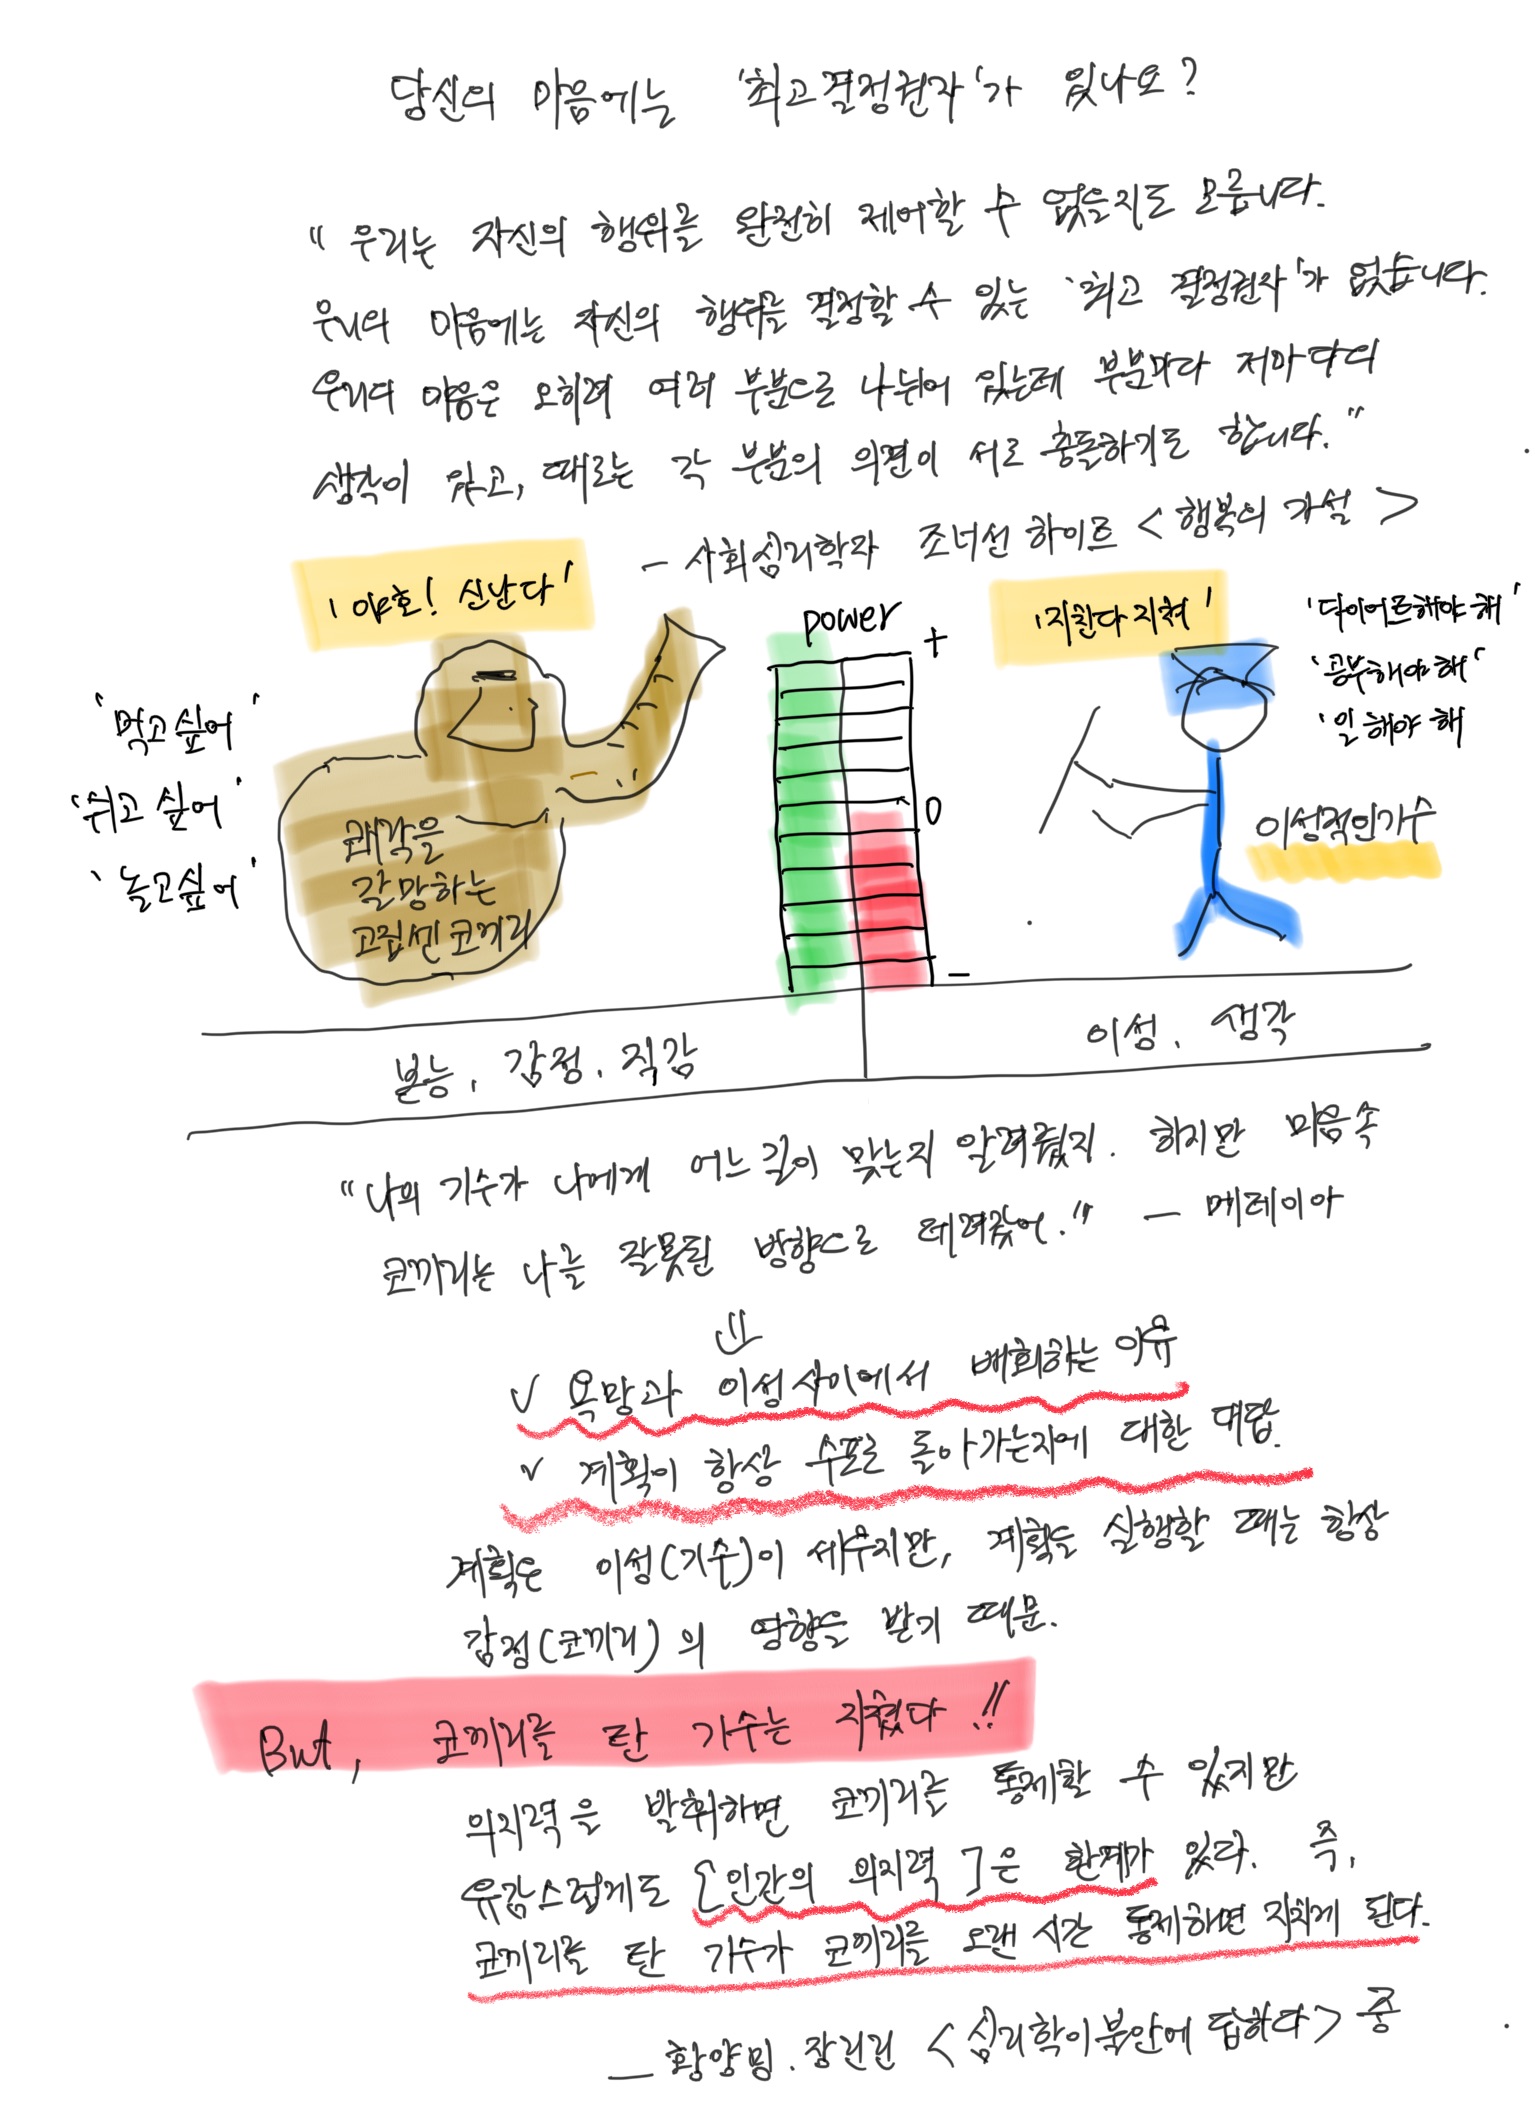 당신의 마음에는 '최고결정권자'가 있나요?
" 우리는 자신의 행위를 완전히 제어할 수 없을지도 모릅니다.
우리의 마음에는 자신의 행위를 결정할 수 있는 '최고 결정권자'가 없습니다.
우리의 마음은 오히려 여러 부분으로 나뉘어 있는데 부분마다 저마다의
생각이 있고, 때로는 각 부분의 의견이 서로 충돌하기도 합니다."
- 사회심리학자 조너선 하이트 <행복의 가설>
'야호! 신난다'
power
+
'지친다 지쳐'
'다이어트해야 해'
'공부해야 해'
'일 해야 해
'먹고싶어'
'쉬고 싶어'
'놀고싶어'
0
쾌락을
갈망하는
고집센 코끼리
이성적인 기수
-
본능, 감정, 직감
이성, 생각
"나의 기수가 나에게 어느 길이 맞는지 알려줬지. 하지만 마음속
코끼리는 나를 잘못된 방향으로 데려갔어." - 메레이아
✓ 욕망과 이성사이에서 배회하는 이유
✓ 계획이 항상 수포로 돌아가는지에 대한 대답.
계획은 이성(기수)이 세우지만, 계획을 실행할 때는 항상
감정(코끼리)의 영향을 받기 때문.
But, 코끼리를 탄 기수는 지쳤다!!
의지력을 발휘하면 코끼리를 통제할 수 있지만
유감스럽게도 [인간의 의지력]은 한계가 있다. 즉,
코끼리를 탄 기수가 코끼리를 오랜 시간 통제하면 지치게 된다.
- 황양밍. 장린린 <심리학이 불안에 답하다> 중